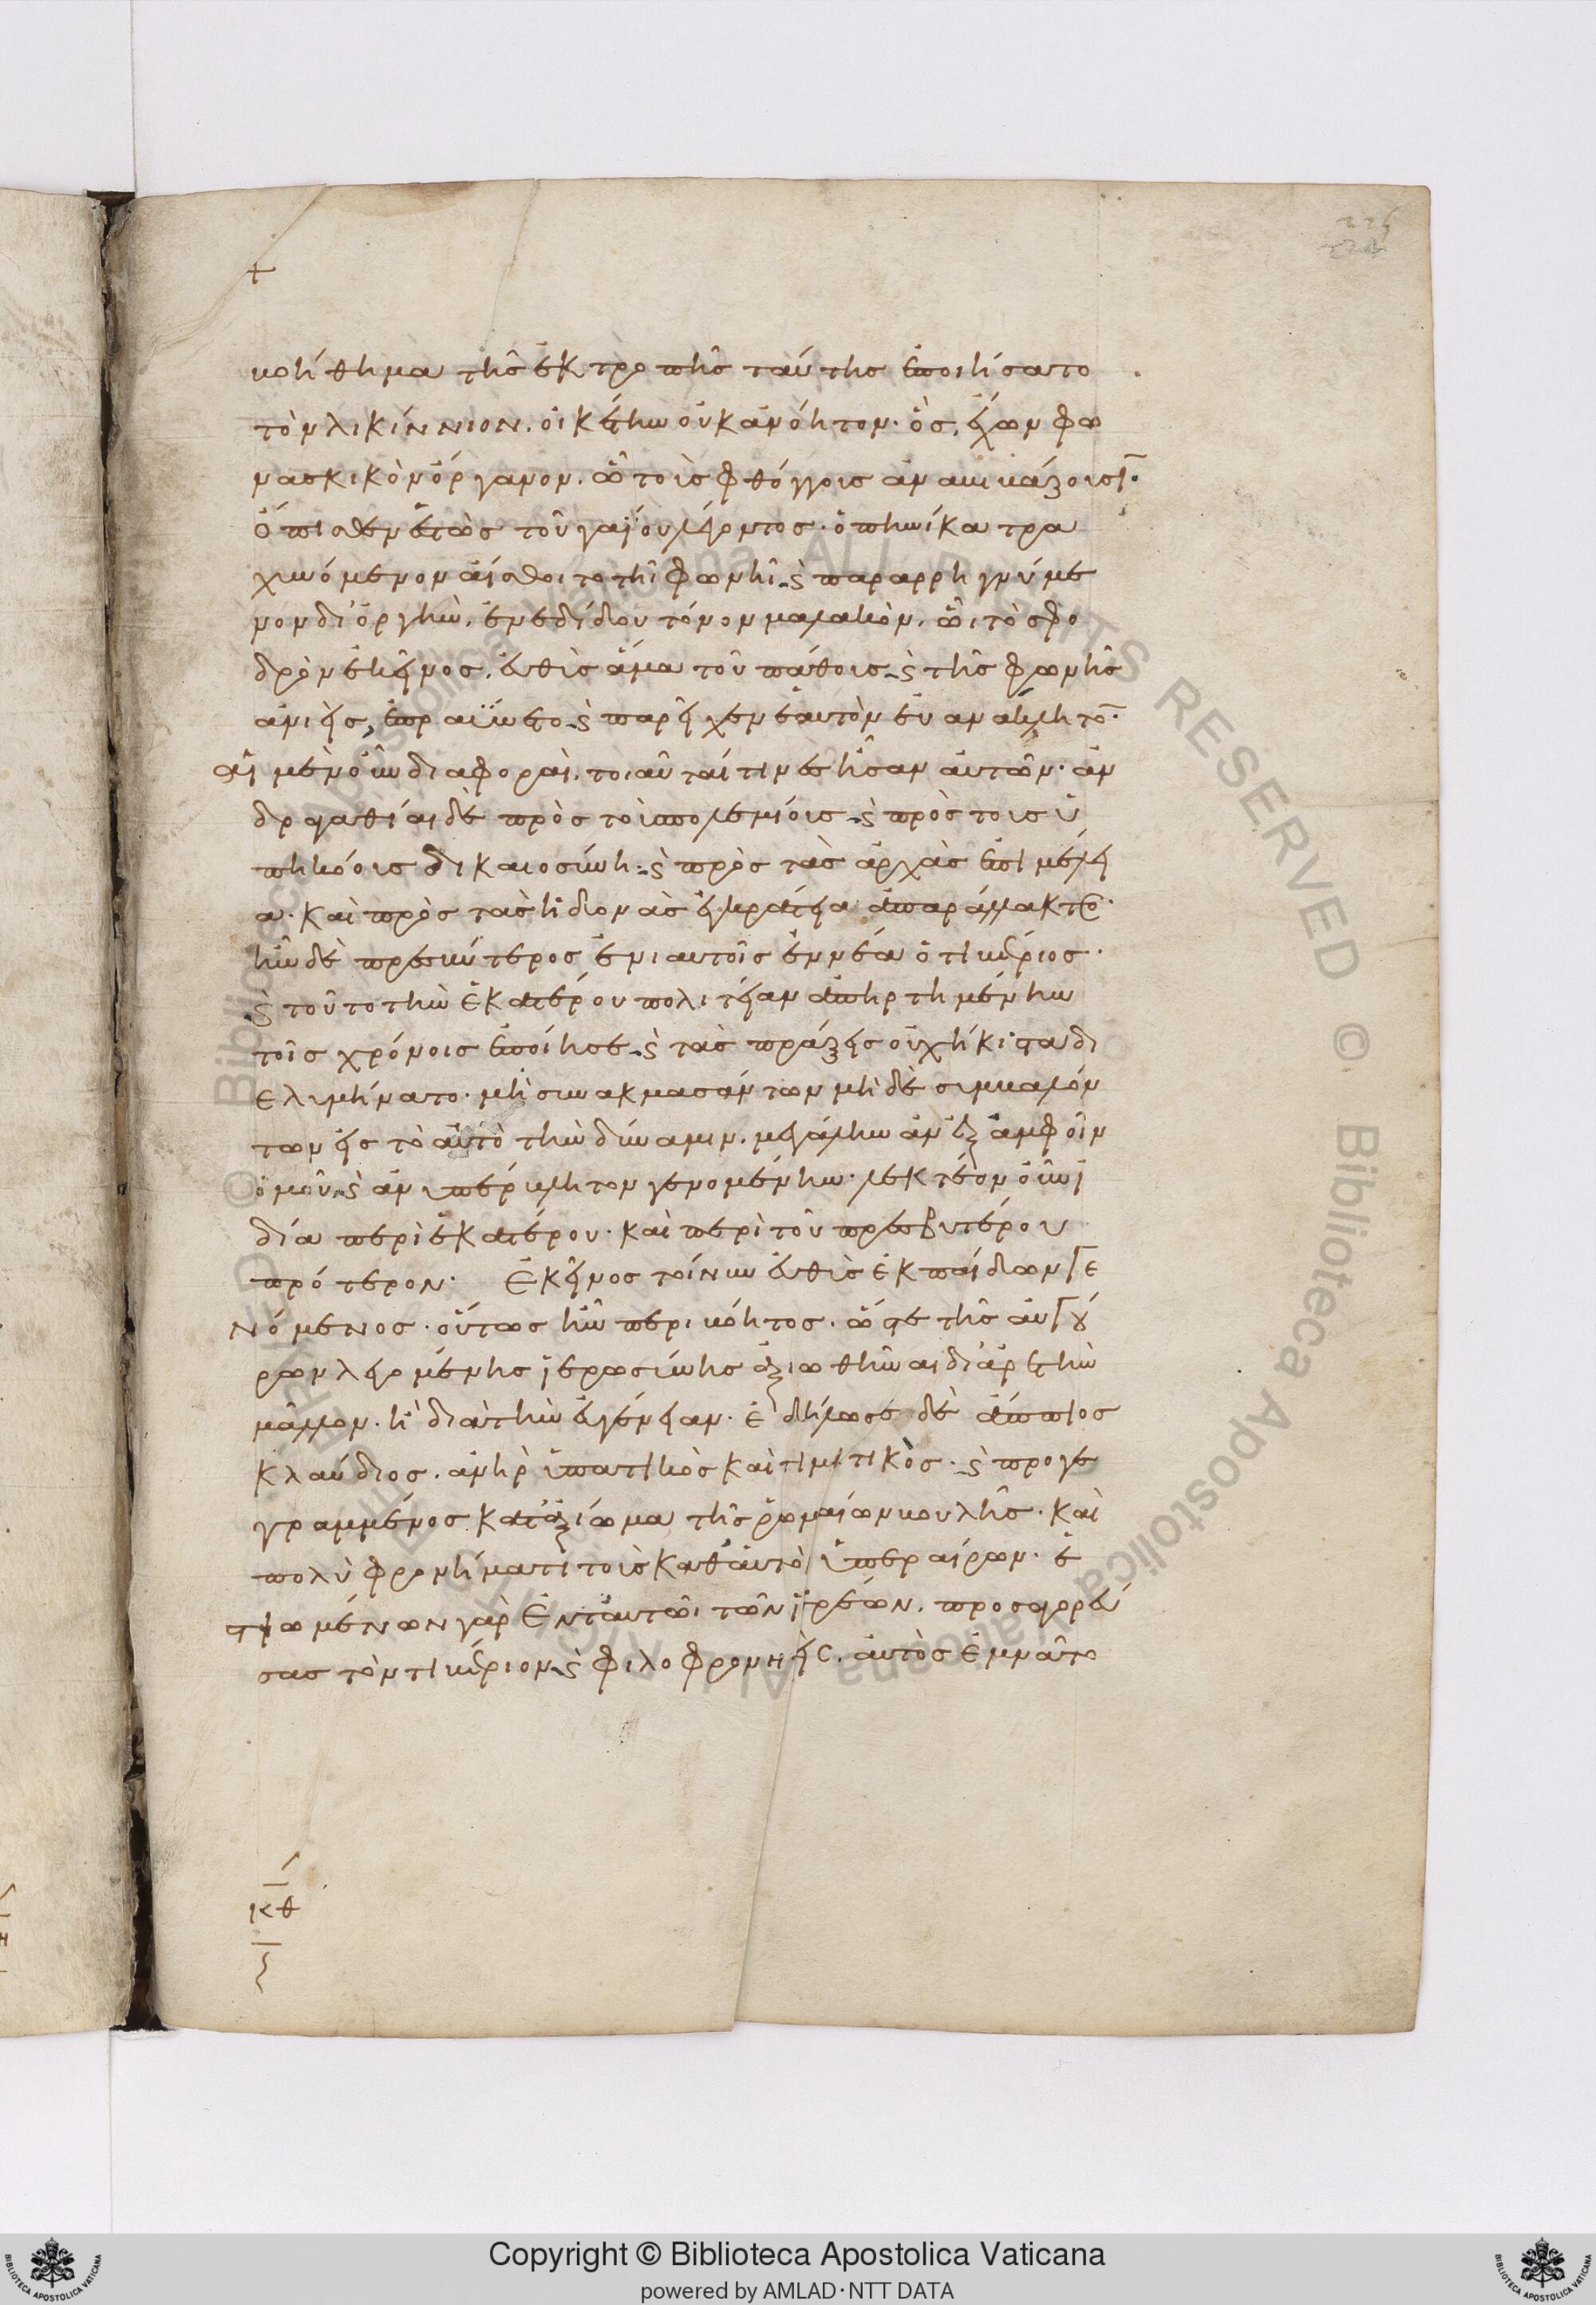 βοήθημα τῆς ἐκτροπῆς ταύτης ἐποιήσατο
τὸν λικίννιον. οἰκέτην οὐκ ἀνόητον. ὃς, ἔχων φω
νασκικὸν ὄργανον. ᾧ τοὺς φθόγγους ἀναβιβάζουσι.
ὄπισθεν ἑστὼς τοῦ γαΐου λέγοντος. ὁπηνίκα τρα
χυνόμενον αἴσθοιτο τῇ φωνῇ ϗ παραρρηγνύμε
νον δι' ὀργὴν, ἐνεδίδου τόνον μαλακόν. ᾧ τὸ σφο
δρὸν ἐκεῖνος, εὐθὺς ἅμα τοῦ πάθους ϗ τῆς φωνῆς
ἀνιεὶς, ἐπραΰνετο ϗ παρεῖχεν ἑαυτὸν εὐανάκλητον.
αἱ μὲν οὖν διαφοραὶ, τοιαῦταί τινες ἦσαν αὐτῶν. ἀν
δραγαθίαι δὲ πρὸς τοὺς πολεμίους ϗ πρὸς τοὺς ὑ
πηκόους δικαιοσύνη. ϗ πρὸς τὰς ἀρχὰς ἐπιμέλει
α. καὶ πρὸς τὰς ἡδονὰς ἐγκράτεια ἀπαράλλακτος.
ἦν δὲ πρεσβύτερος ἐνιαυτοῖς ἐννέα ὁ τιβέριος.
ϗ τοῦτο τὴν ἑκατέρου πολιτείαν ἀπηρτημένην
τοῖς χρόνοις ἐποίησε ϗ τὰς πράξεις οὐχ ἥκιστα δι
ελυμήνατο. μὴ συνακμασάντων μηδὲ συμβαλόν
των εἰς τὸ αὐτὸ τὴν δύναμιν. μεγάλην ἂν ἐξ ἀμφοῖν
ὁμοῦ ϗ ἀνυπέρβλητον γενομένην. λεκτέον οὖν ἰ
δία περὶ ἑκατέρου. καὶ περὶ τοῦ πρεσβυτέρου
πρότερον. Ἐκεῖνος τοίνυν εὐθὺς ἐκ παίδων γε
νόμενος. οὕτως ἦν περιβόητος. ὥστε τῆς αὐγού
ρων λεγομένης ἱερωσύνης ἀξιωθῆναι δι' ἀρετὴν
μᾶλλον. ἢ διὰ τὴν εὐγένειαν. ἐδήλωσε δὲ ἄππιος
κλαύδιος. ἀνὴρ ὑπατικὸς καὶ τιμητικὸς. ϗ προγε
γραμμένος κατ' ἀξίωμα τῆς ῥωμαίων βουλῆς. καὶ
πολὺ φρονήματι τοὺς καθ' αὑτὸν ὑπεραίρων. ἑ
στιωμένων γὰρ ἐν ταυτῶι τῶν ἱερέων. προσαγορεύ
σας τὸν τιβέριον ϗ φιλοφρονηθεὶς. αὐτὸς ἐμνᾶτο
κθ